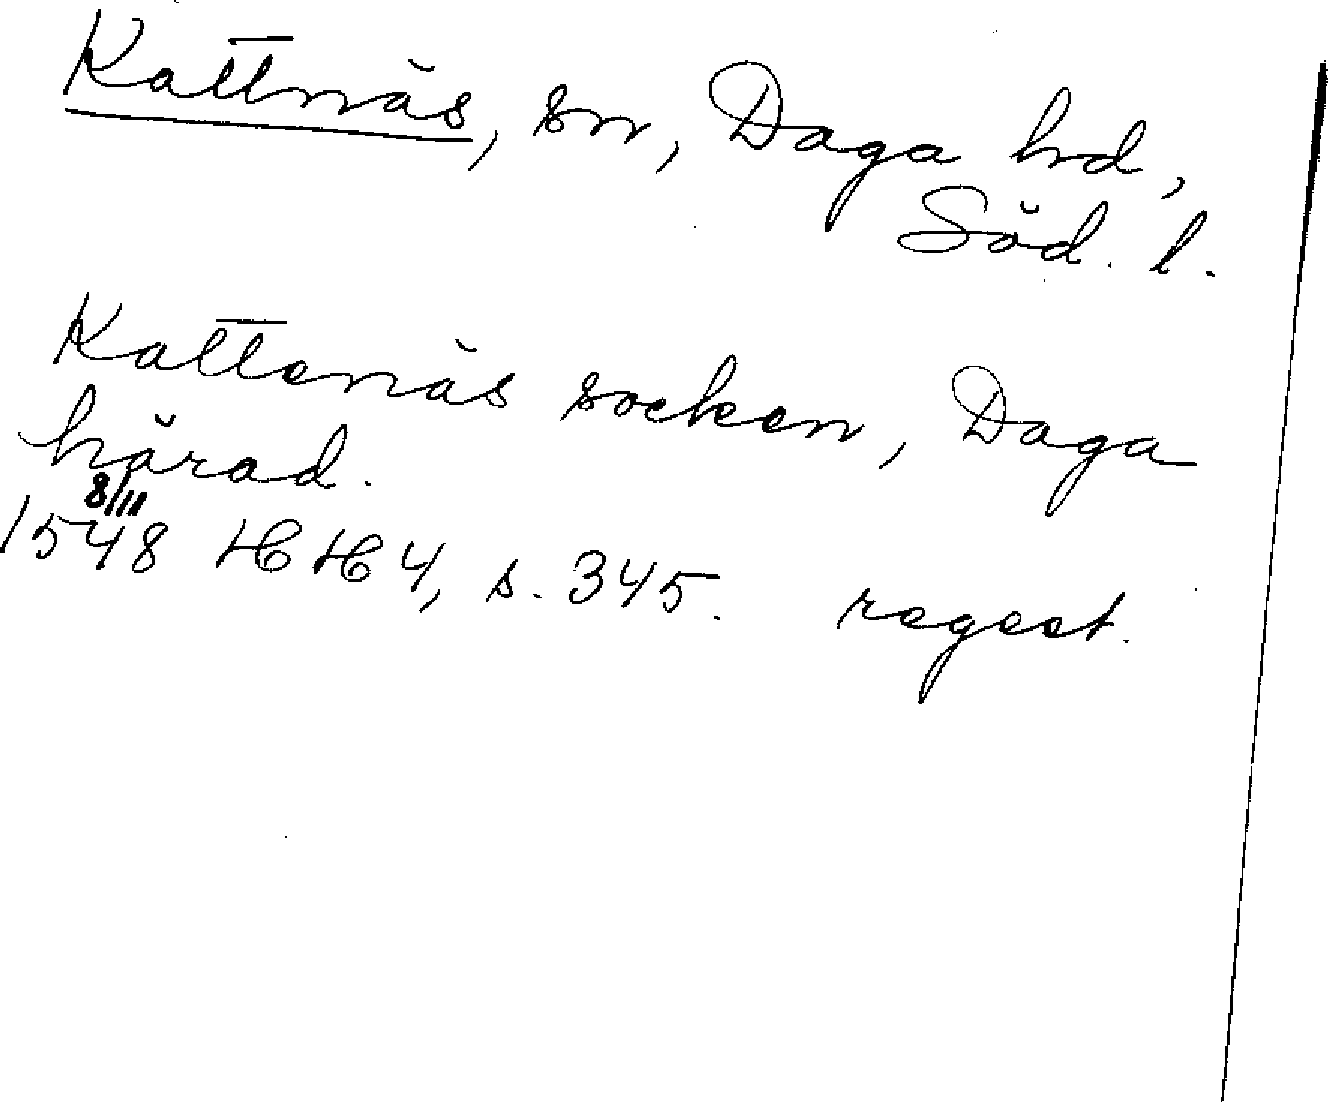 Kattnäs, sn, Daga hd,
Söd. l.
Kattenäs socken, Daga
härad.
8/11
1548 HH 4, s. 345. regest.